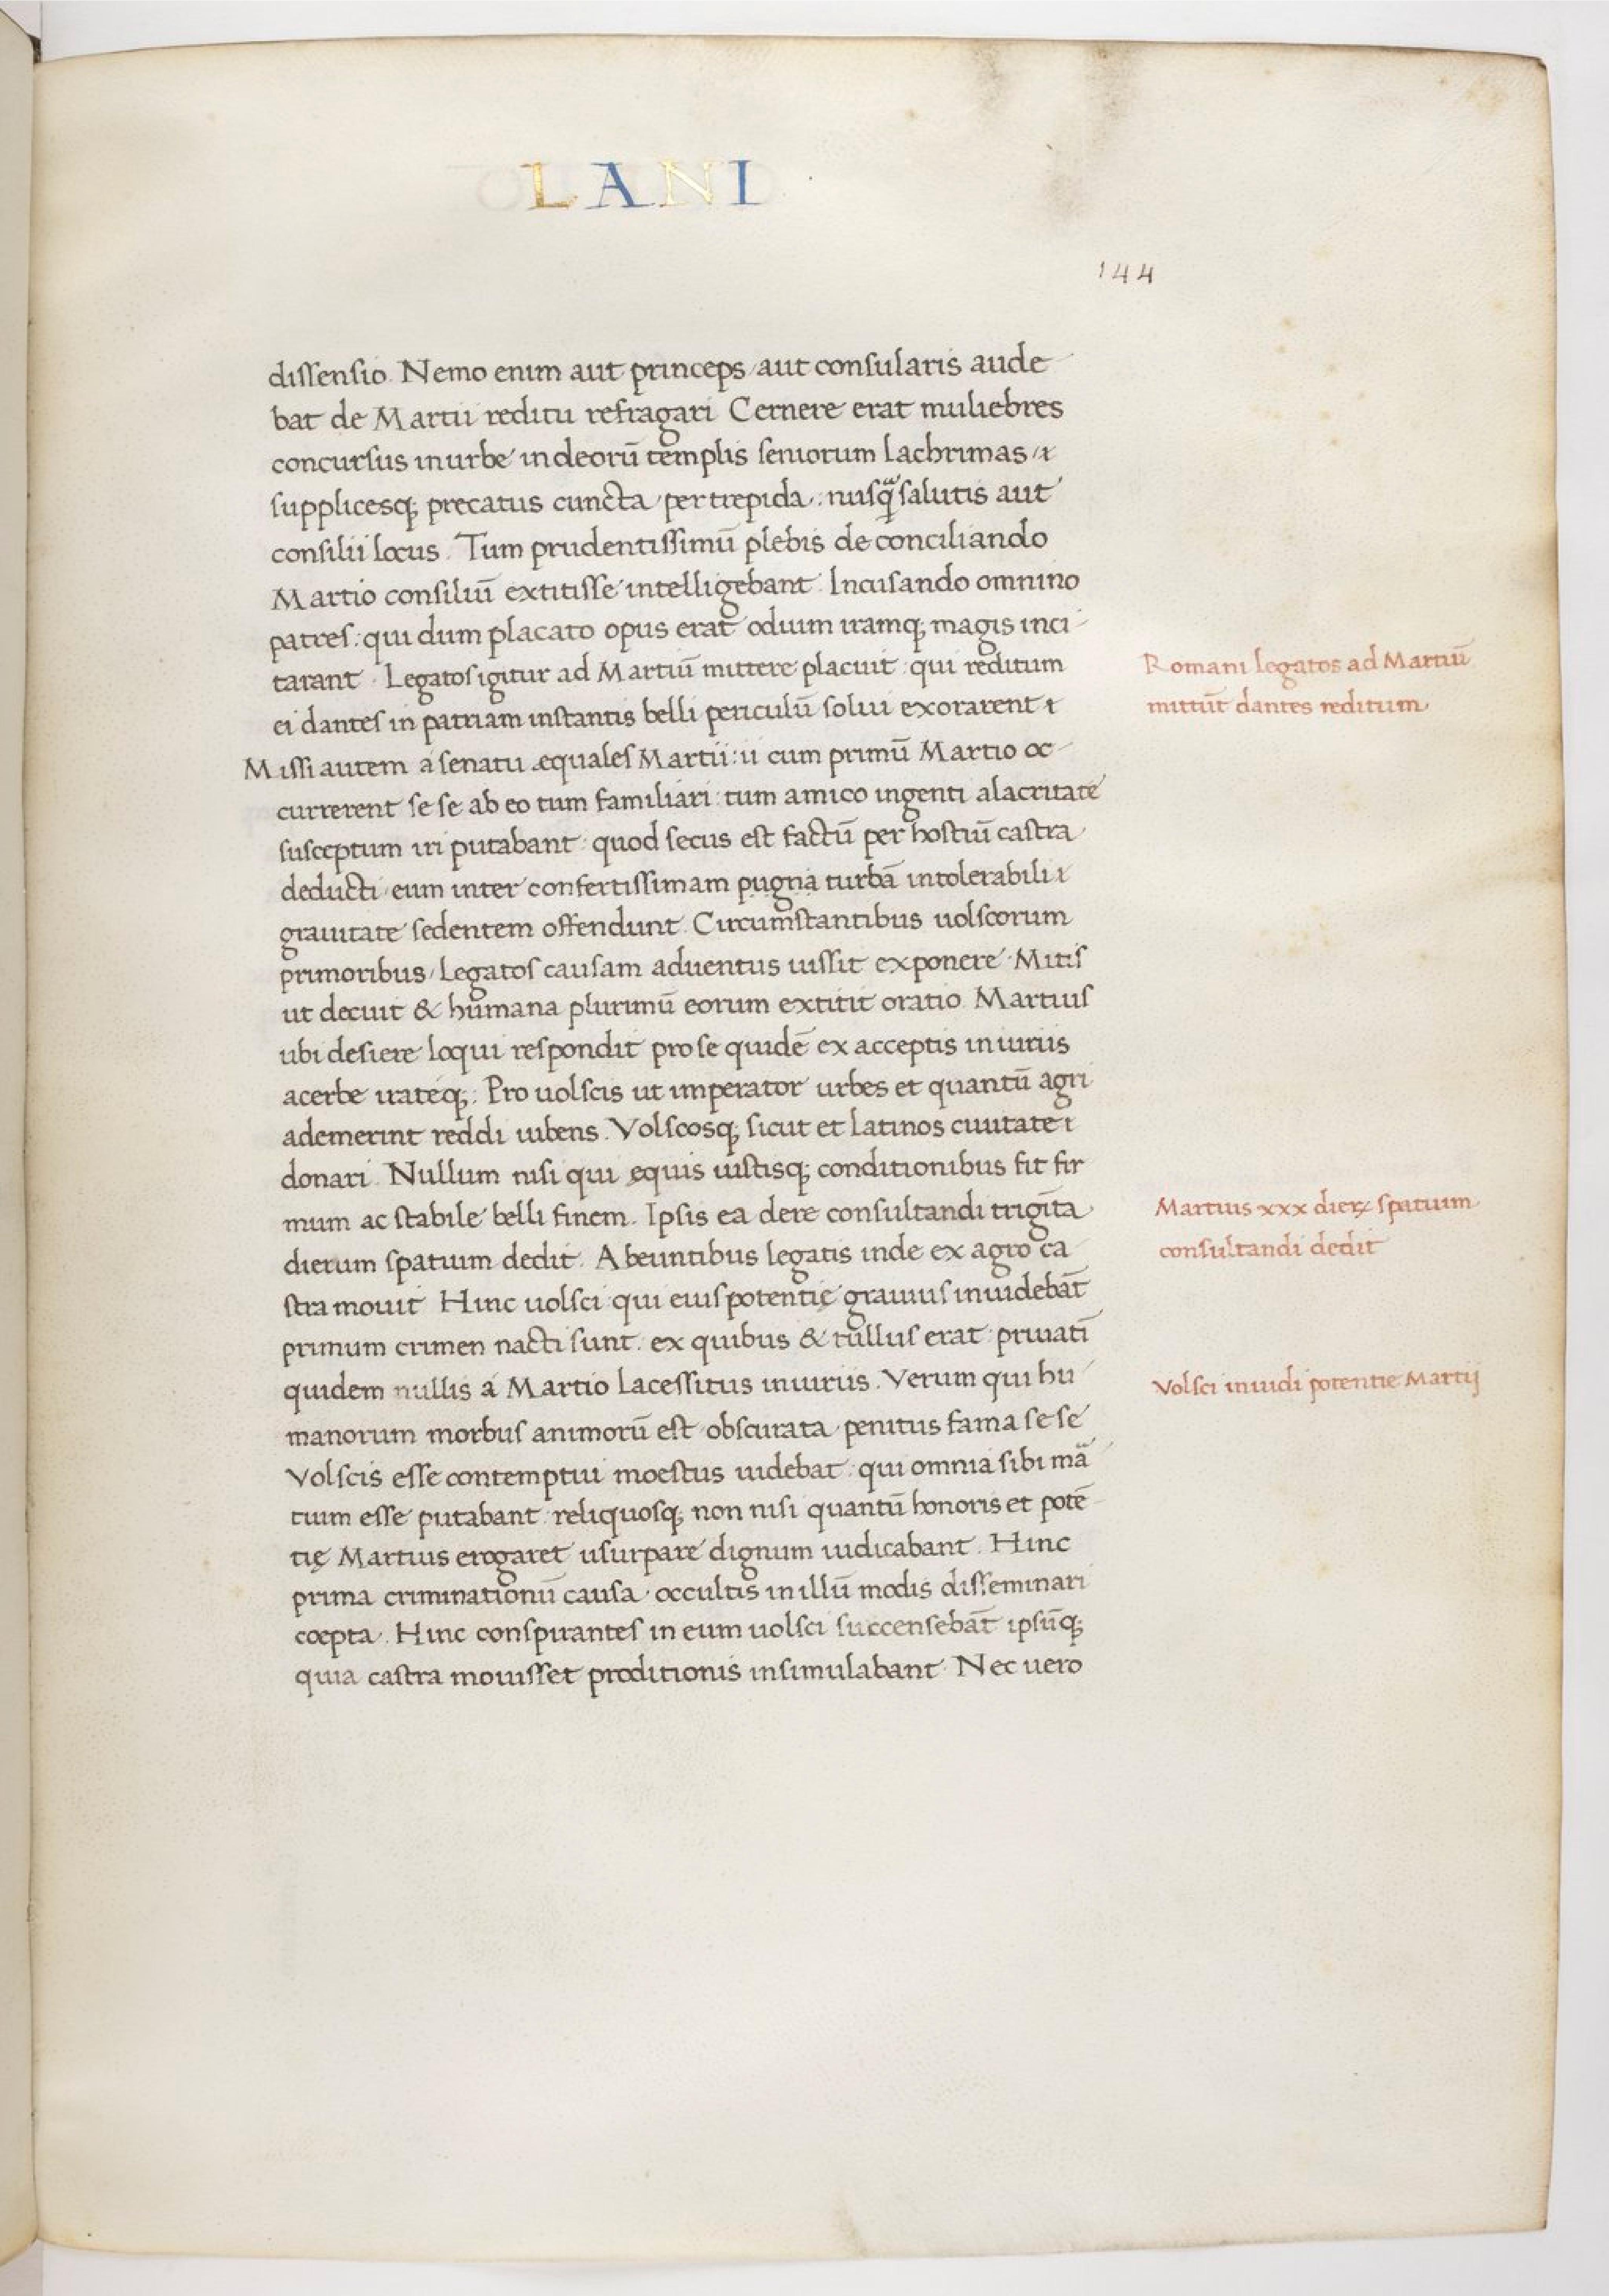 LANI
144
dissensio. Nemo enim aut princeps / aut consularis aude-
bat de Martii reditu refragari Cernere erat muliebres
concursus in urbe in deorū templis seniorum lachrimas /
supplicesq; precatus cuncta / pertrepida: nusq̈ salutis aut
consilii locus. Tum prudentissimū plebis de conciliando
Martio consiliū extitisse intelligebant. Incusando omnino
patres: qui dum placato opus erat odium iramq; magis inci-
tarant. Legatos igitur ad Martiū mittere placuit: qui reditum
ei dantes in patriam instantis belli periculū solui exorarent
Missi autem á senatu equales Martii: ii cum primū Martio oc-
currerent se se ab eo tum familiari: tum amico ingenti alacritate
susceptum iri putabant: quod secus est factū per hostiū castra
deducti / eum inter confertissimam pugna turbā intolerabili
grauitate sedentem offendunt. Circumstantibus uolscorum
primoribus / Legatos causam aduentus iussit exponere. Mitis
ut decuit & humana plurimū eorum extitit oratio. Martius
ubi desiere loqui respondit pro se quidē ex acceptis iniuriis
acerbe irateq;: Pro uolscis ut imperator urbes et quantū agri
ademerint reddi iubens. Volscosq; sicut et latinos ciuitate
donari. Nullum nisi qui ęquis iustisq; conditionibus fit fir
mum ac stabile belli finem. Ipsis ea de re consultandi trigīta
dierum spatium dedit. Abeuntibus legatis inde ex agro ca
stra mouit Hinc uolsci qui eius potentię grauius inuidebāt
primum crimen nacti sunt: ex quibus & tullus erat: priuatī
quidem nullis á Martio lacessitus iniuriis. Verum qui hu-
manorum morbus animorū est obscurata penitus fama se se
Volscis esse contemptui moestus uidebat: qui omnia sibi mā
tium esse putabant: reliquosq; non nisi quantū honoris et potē-
tię Martius erogaret usurpare dignum iudicabant. Hinc
prima criminationū causa occultis in illū modis disseminari
coepta. Hinc conspirantes in eum uolsci succensebāt ipsūq;
quia castra mouisset proditionis insimulabant. Nec uero
Romani legatos ad Martiū
mittūt dantes reditum
Martius xxx dierꝝ spatium
consultandi dedit
Volsci inuidi potentie Martij